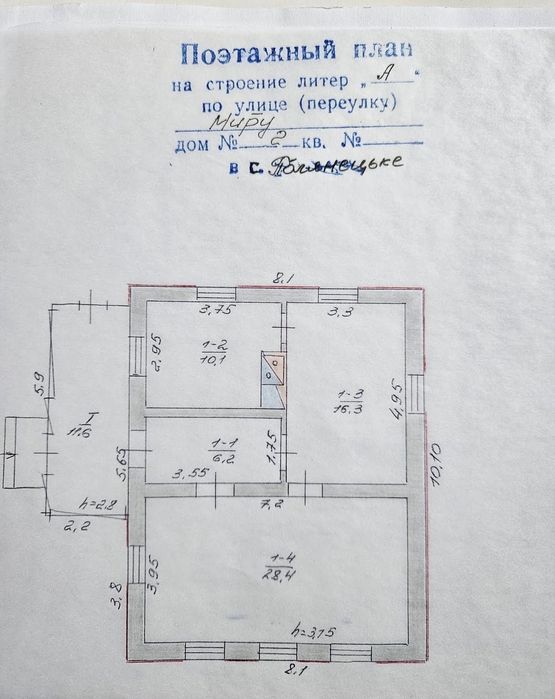 Поэтажный план
на строение литер „А“
по улице (переулку)
Миру
дом № 2 кв. №
в с. Полянецьке
8.1
3,75
3.3
2,95
1-2
10,1
5,9
I
11.6
1-3
16.3
4,95
1-1
6,2
1,75
5,65
3,55
10,10
h=2,8
2,2
7,2
1-4
28,4
3,8
3,95
h=3,15
8.1